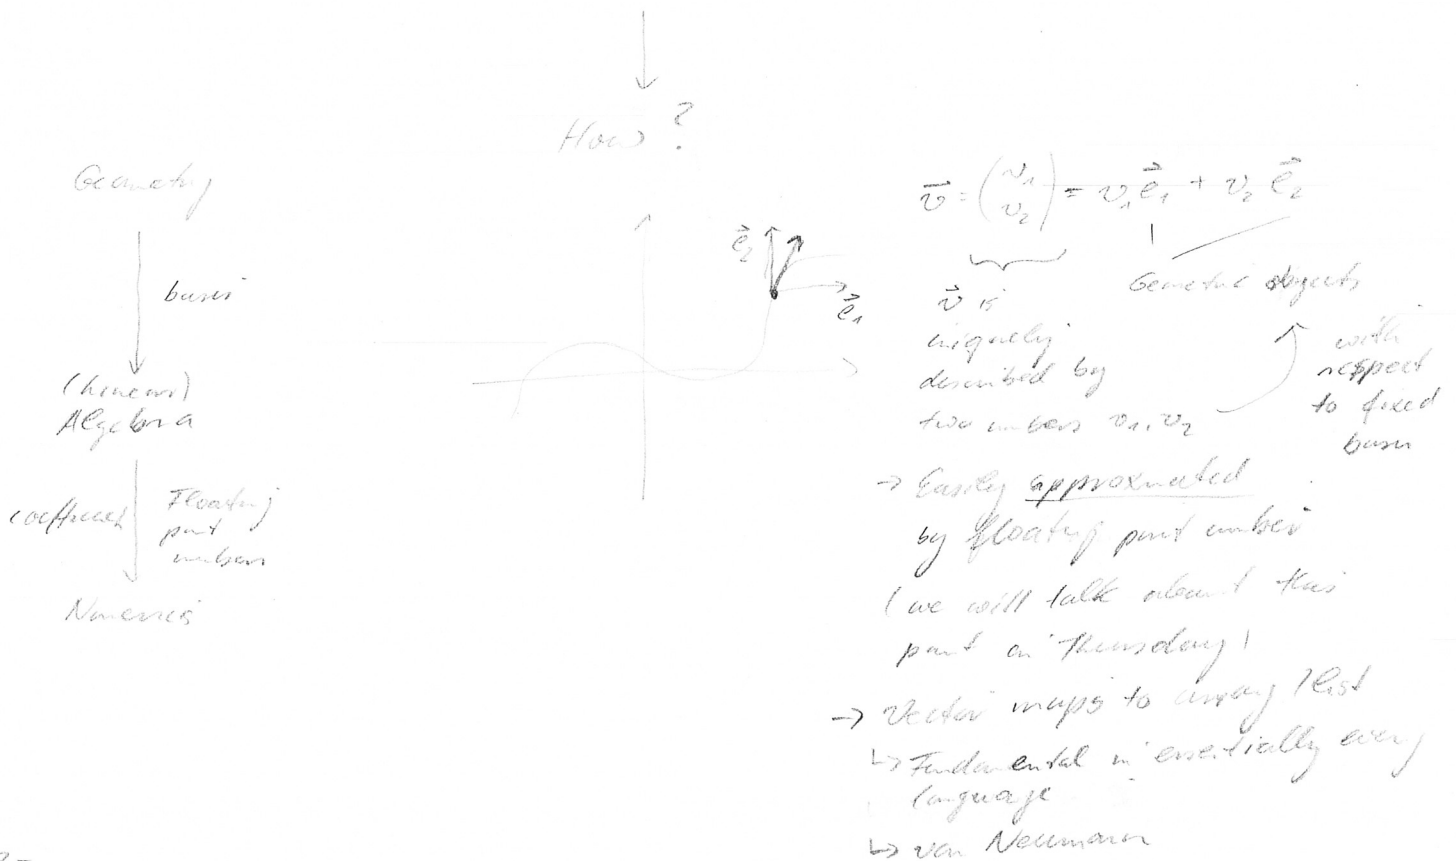 How?
Geometry
basis
(Linear)
Algebra
coefficient
Floating
point
numbers
Numerics
e⃗₂
e⃗₁
v⃗ = (v₁ v₂) = v₁e⃗₁ + v₂e⃗₂
Geometric objects
v⃗ is
uniquely
described by
two numbers v₁, v₂
with
respect
to fixed
basis
→ Easily approximated
by floating point number
(we will talk about this
part on Thursday)
→ Vector maps to array / list
↳ Fundamental in essentially every
language
↳ von Neumann